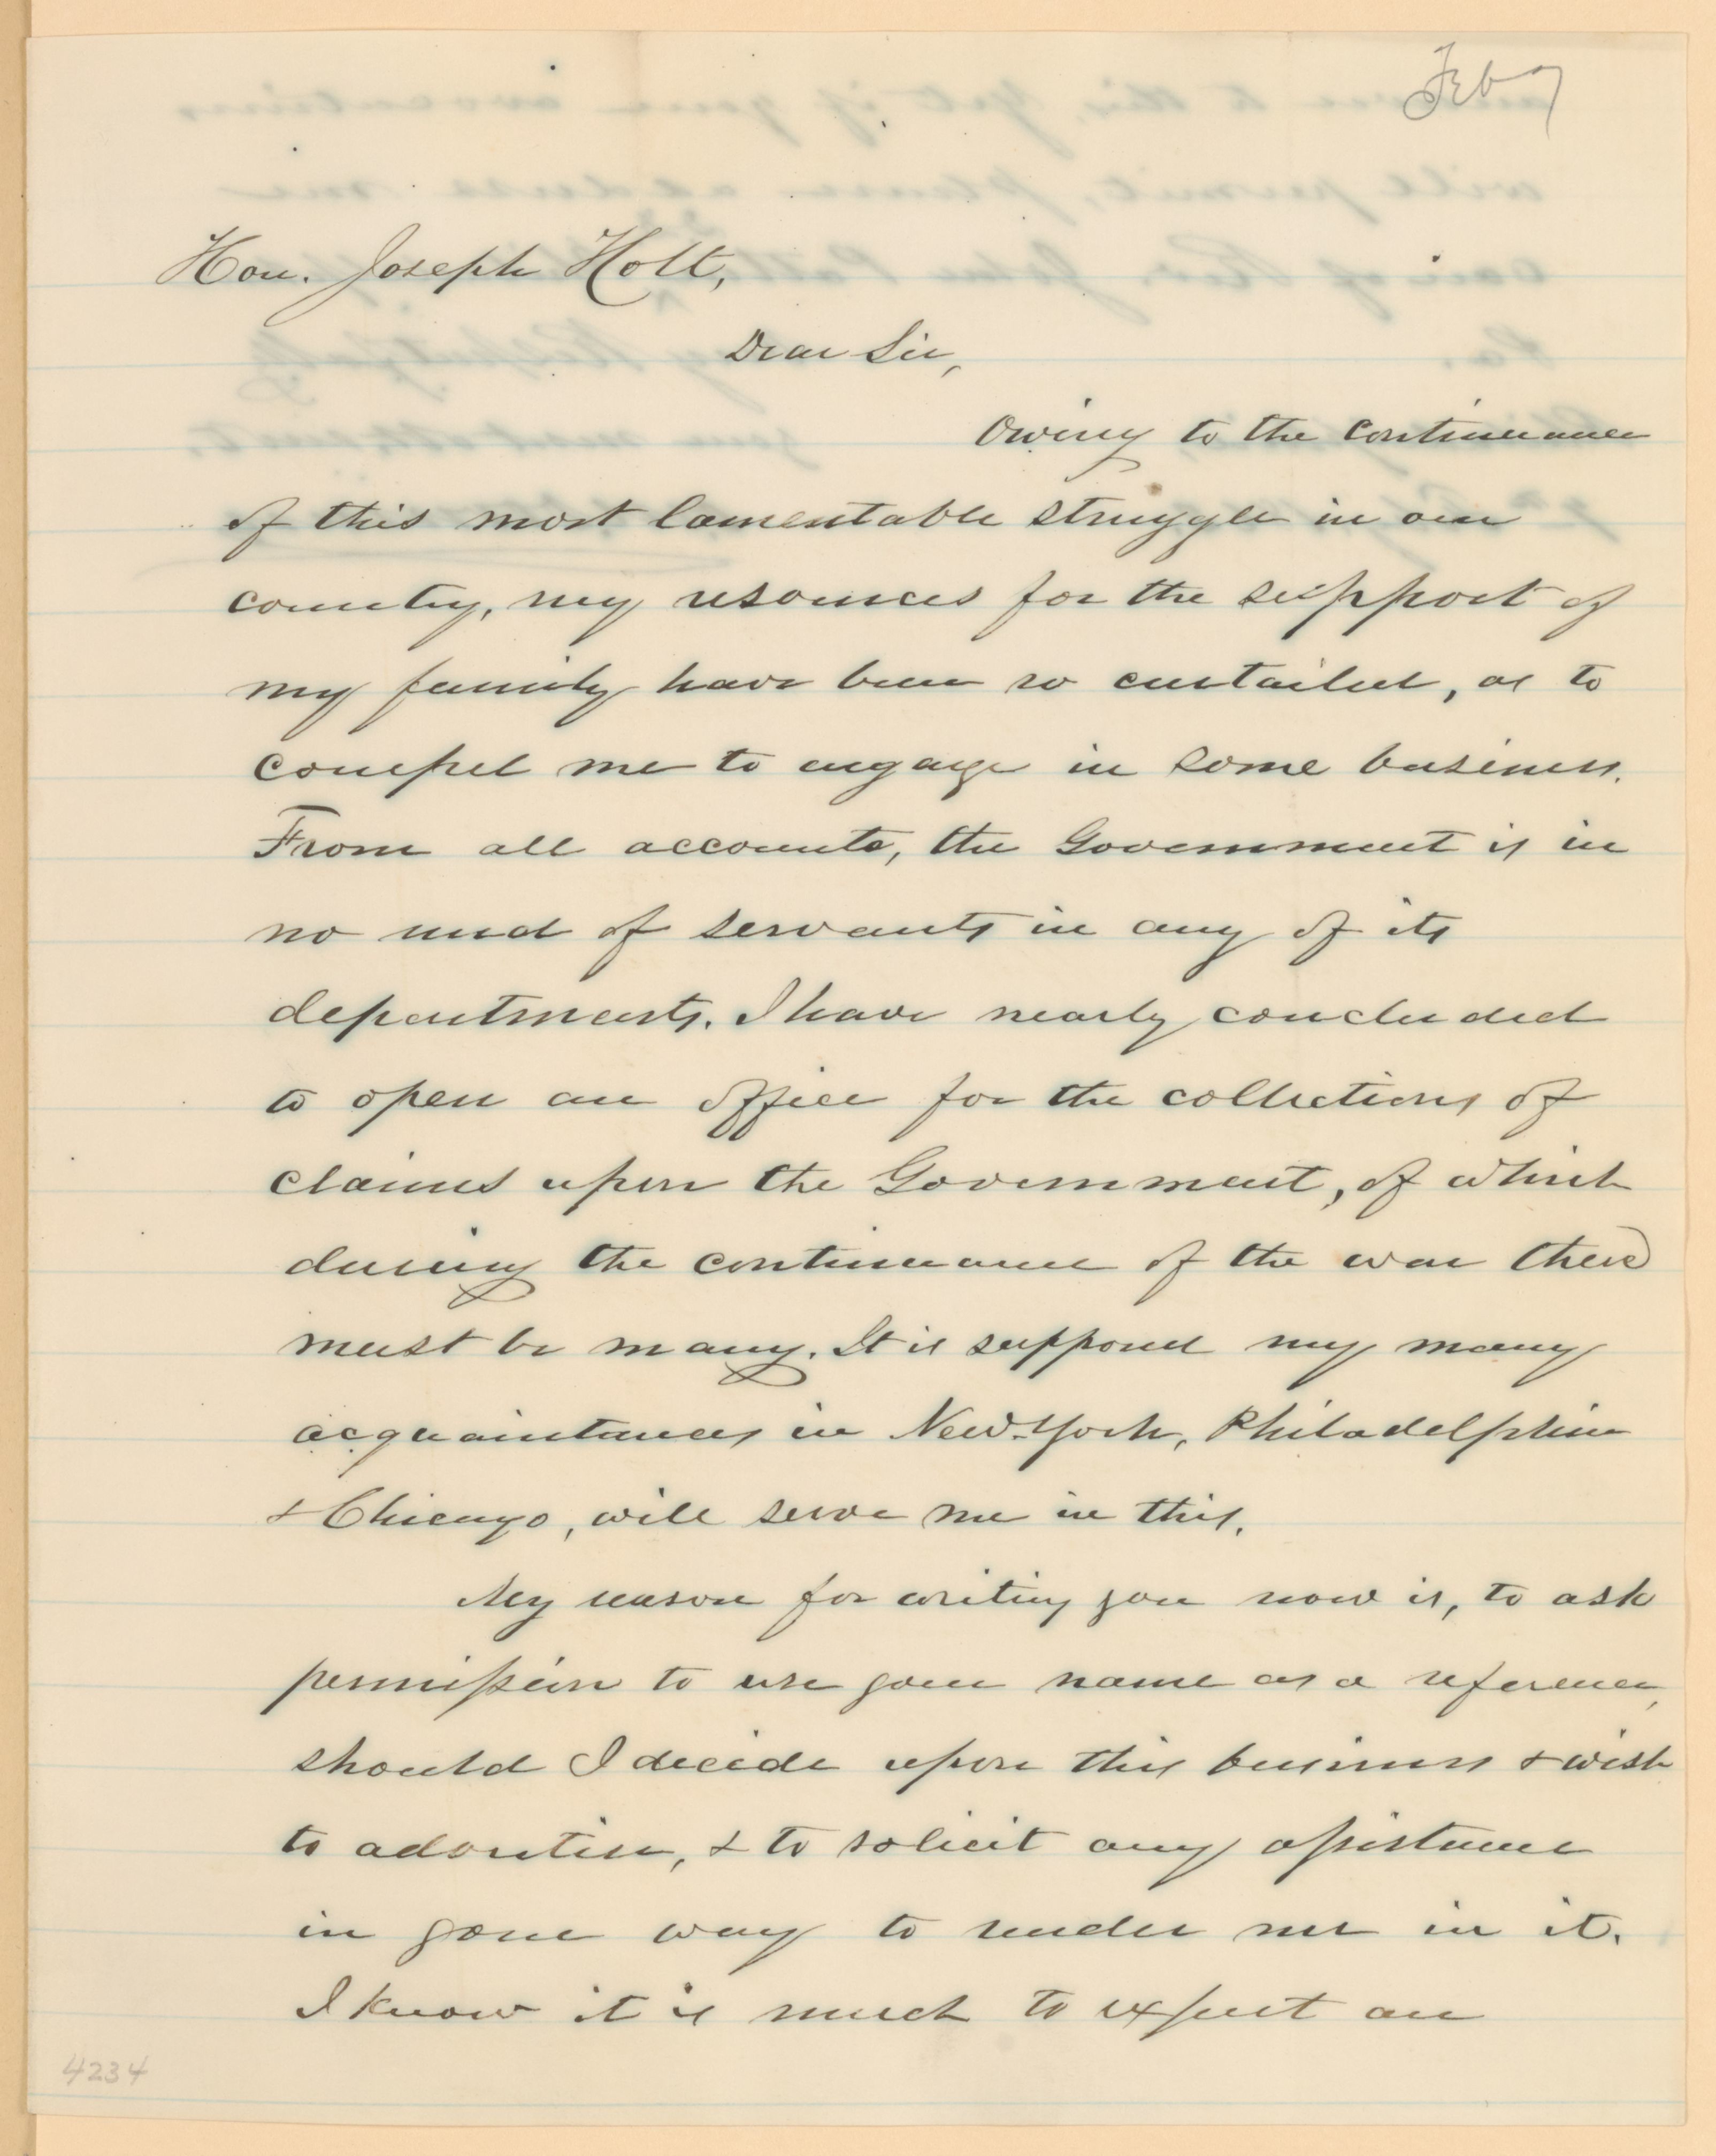 Feb 7
Hon. Joseph Holt,
Dear Sir,
Owing to the continuance
of this most lamentable struggle in our
country, my resources for the support of
my family have been so curtailed, as to
compel me to engage in some business.
From all accounts, the Government is in
no need of servants in any of its
departments. I have nearly concluded
to open an office for the collections of
claims upon the Government, of which
during the continuance of the war there
must be many. It is supposed my many
acquaintances in New-York, Philadelphia
& Chicago, will serve me in this.
My reason for writing you now is, to ask
permission to use your name as a reference,
should I decide upon this business & wish
to advertise, & to solicit any assistance
in your way to render me in it.
I know it is much to expect an
4234